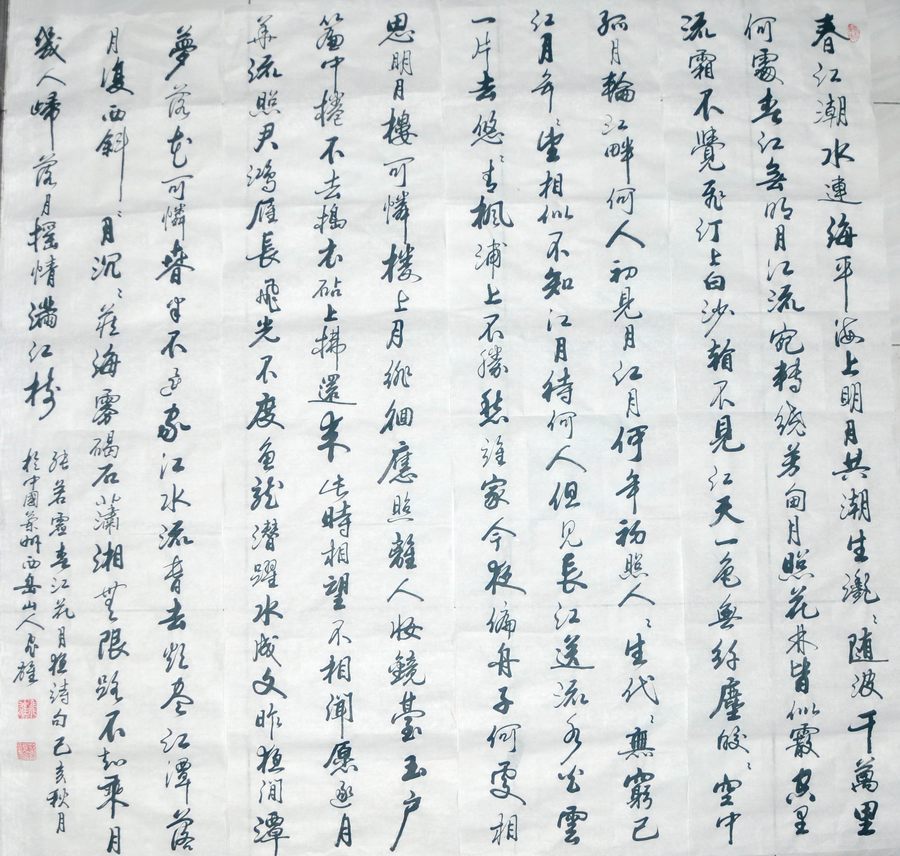 春江潮水連海平海上明月共潮生灩〻随波千萬里
何處春江無明月江流宛轉繞芳甸月照花林皆似霰空里
流霜不覺飛汀上白沙看不見江天一色無纖塵皎〻空中
孤月輪江畔何人初見月江月何年初照人〻生代〻無窮已
江月年〻望相似不知江月待何人但見長江送流水白雲
一片去悠〻青楓浦上不勝愁誰家今夜扁舟子何處相
思明月樓可憐樓上月徘徊應照離人妝鏡臺玉户
簾中捲不去搗衣砧上拂還來此時相望不相聞愿逐月
華流照君鴻雁長飛光不度魚龍潛躍水成文昨夜閒潭
夢落花可憐春半不還家江水流春去欲盡江潭落
月復西斜〻月沉〻藏海霧碣石瀟湘無限路不知乘月
幾人歸落月摇情滿江樹
張若虛春江花月夜詩句己亥秋月
於中國州西山人雄